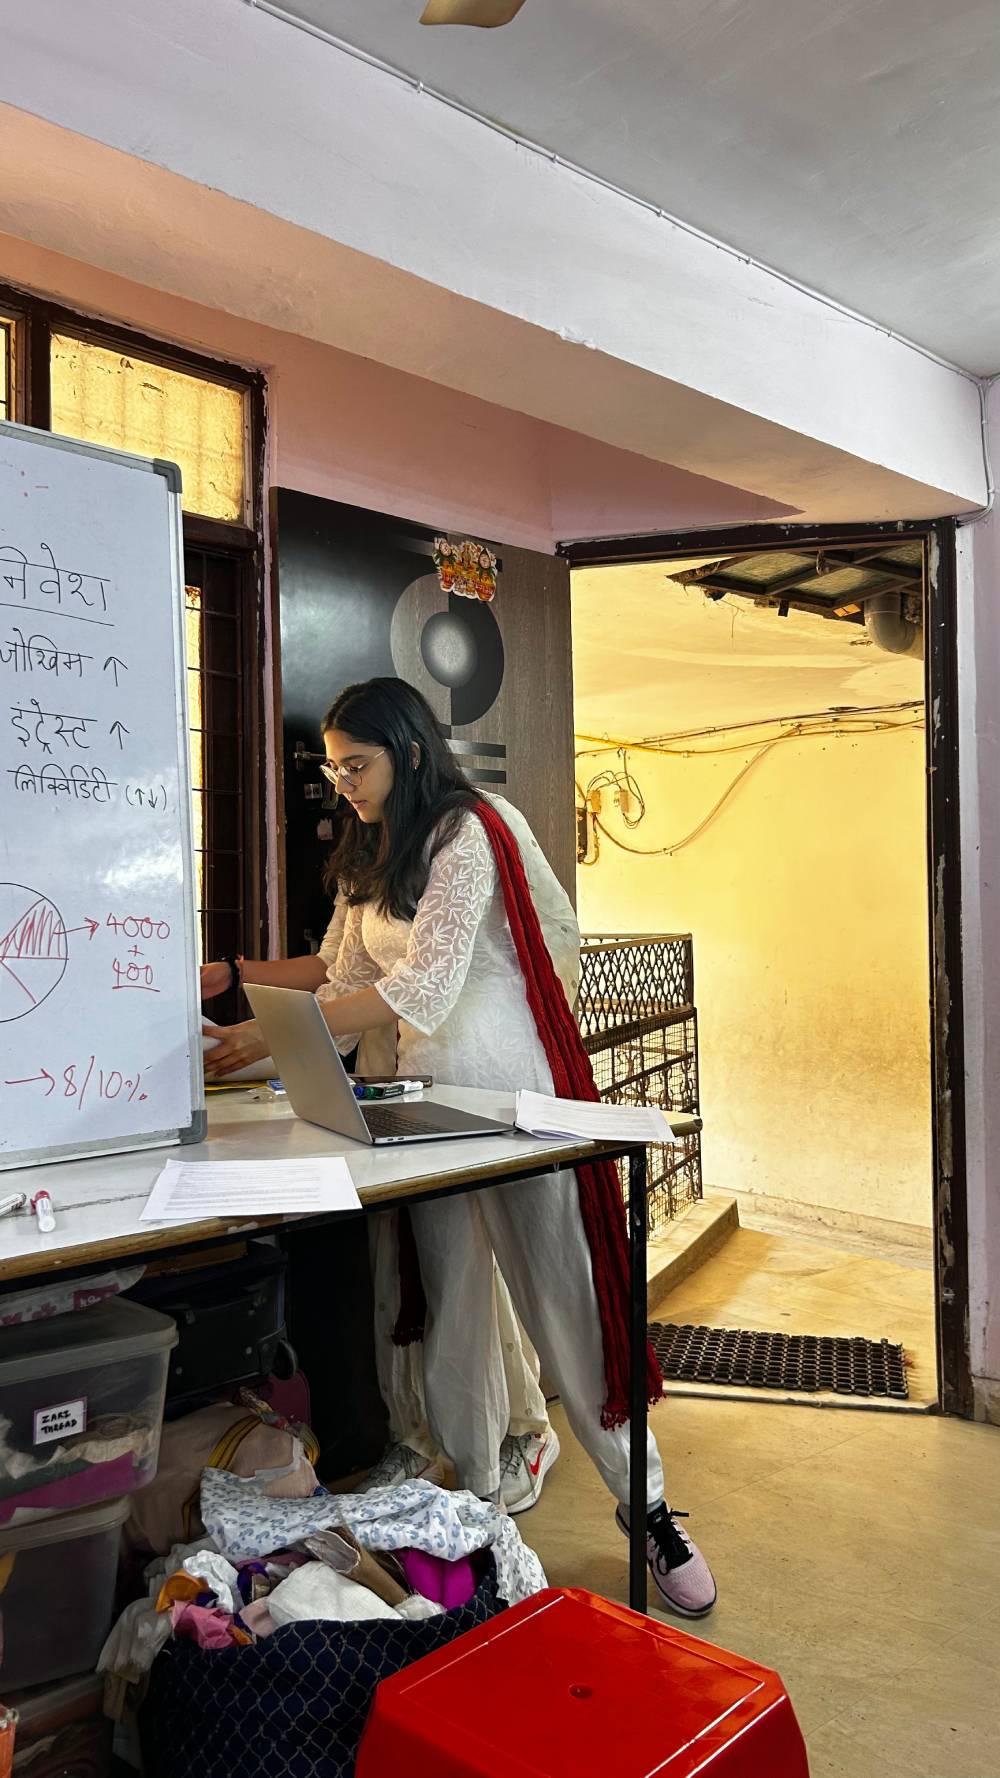 निवेश
जोखिम ↑
इंट्रेस्ट ↑
लिक्विडिटी (↑↓)
→ 4000
+
400
→ 8/10%
ZARI
THREAD